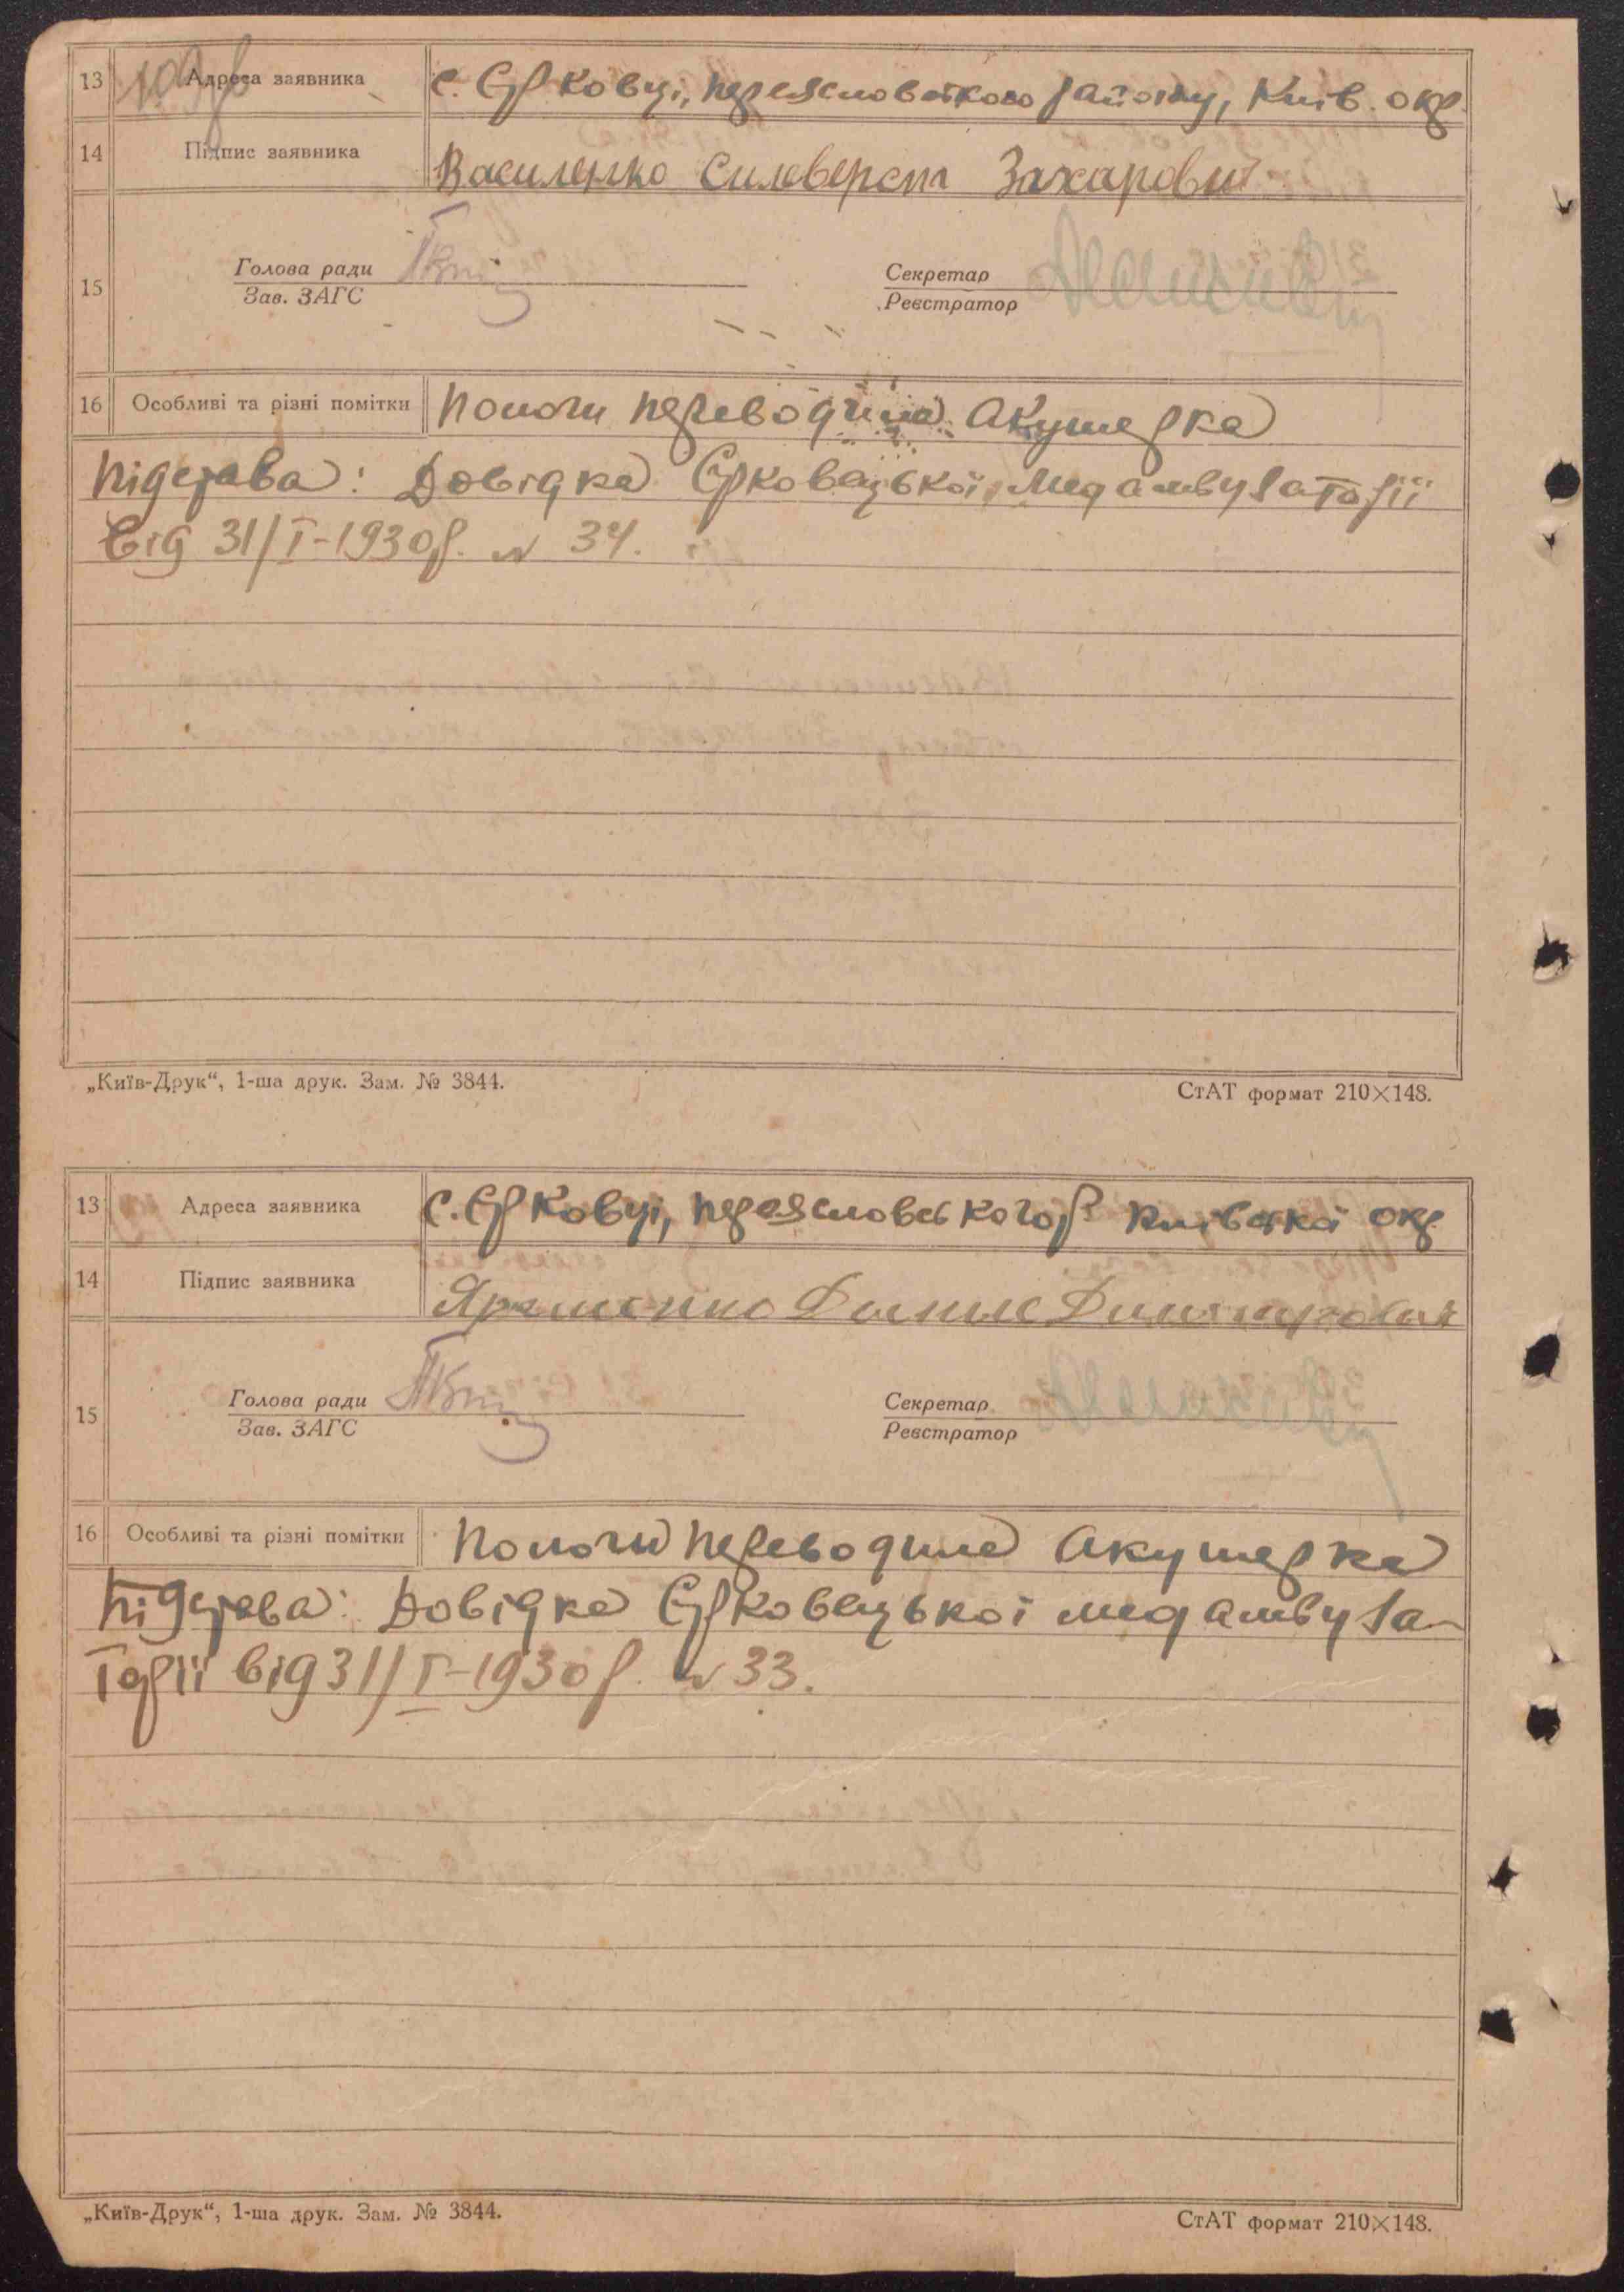 109 зв
13 Адреса заявника С. Стрковці, переясловського району, Київ. окр.
14 Підпис заявника Василенко Силеверст Захарович
15 Голова ради Секретар
Зав. ЗАГС Реєстратор
16 Особливі та різні помітки Пологи переводила Акушерка
підстава: Довідка Стрковецької, Медамвулаторії
від 31/I-1930р. № 34.
„Київ-Друк“, 1-ша друк. Зам. № 3844. СтАТ формат 210×148.
13 Адреса заявника С. Стрковці, переясловського р. Київської окр
14 Підпис заявника Яременко Данило Дмитрович
15 Голова ради Секретар
Зав. ЗАГС Реєстратор
16 Особливі та різні помітки Пологи переводила Акушерка
підстава: Довідка Стрковецької медамвула-
торії від 31/I-1930р. № 33.
„Київ-Друк“, 1-ша друк. Зам. № 3844. СтАТ формат 210×148.